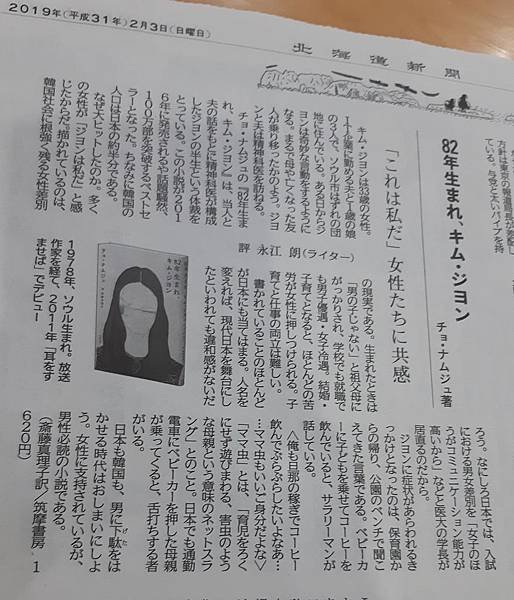 2019年(平成31年)2月3日(日曜日)
北海道新聞
方針は東京の報道局長が差配し
ている。与党と太いパイプを持
82年生まれ、キム・ジヨン
チョ・ナムジュ著
「これは私だ」女性たちに共感
評 永江 朗(ライター)
キム・ジヨンは33歳の女性。
IT企業に勤める夫と1歳の娘
の3人で、ソウル市はずれの団
地に住んでいる。ある日からジ
ヨンは奇妙な言動をするように
なる。まるで母や亡くなった友
人が乗り移ったかのよう。ジヨ
ンと夫は精神科医を訪ねる。
チョ・ナムジュの『82年生ま
れ、キム・ジヨン』は、当人と
夫の話をもとに精神科医が構成
したジヨンの半生という体裁を
とっている。この小説が201
6年に発売されるや話題騒然、
100万部を突破するベストセ
ラーとなった。ちなみに韓国の
人口は日本の約半分である。
なぜ大ヒットしたのか。多く
の女性が「ジヨンは私だ」と感
じたからだ。描かれているのは、
韓国社会に根強く残る女性差別
の現実である。生まれたときは
「男の子じゃない」と祖父母に
がっかりされ、学校でも就職で
も男子優遇・女子冷遇。結婚・
子育てとなると、ほとんどの苦
労が女性に押しつけられる。子
育てと仕事の両立は難しい。
書かれていることのほとんど
が日本にも当てはまる。人名を
変えれば、現代日本を舞台にし
たといわれても違和感がないだ
82年生まれ、
キム・ジヨン
チョ・ナムジュ
1978年、ソウル生まれ。放送
作家を経て、2011年「耳をす
ませば」でデビュー
ろう。なにしろ日本では、入試
における男女差別を「女子のほ
うがコミュニケーション能力が
高いから」などと医大の学長が
居直るのだから。
ジヨンに症状があらわれるき
っかけとなったのは、保育園か
らの帰り、公園のベンチで聞こ
えてきた言葉である。ベビーカ
ーに子どもを乗せてコーヒーを
飲んでいると、サラリーマンが
話している。
〈俺も旦那の稼ぎでコーヒー
飲んでぶらぶらしたいよなあ…
…ママ虫もいいご身分だよな〉
「ママ虫」とは、「育児をろく
にせず遊びまわる、害虫のよう
な母親という意味のネットスラ
ング」とのこと。日本でも通勤
電車にベビーカーを押した母親
が乗ってくると、舌打ちする者
がいる。
日本も韓国も、男に下駄をは
げた
かせる時代はおしまいにしよ
う。女性に支持されているが、
男性必読の小説である。
(斎藤真理子訳／筑摩書房 1
620円)